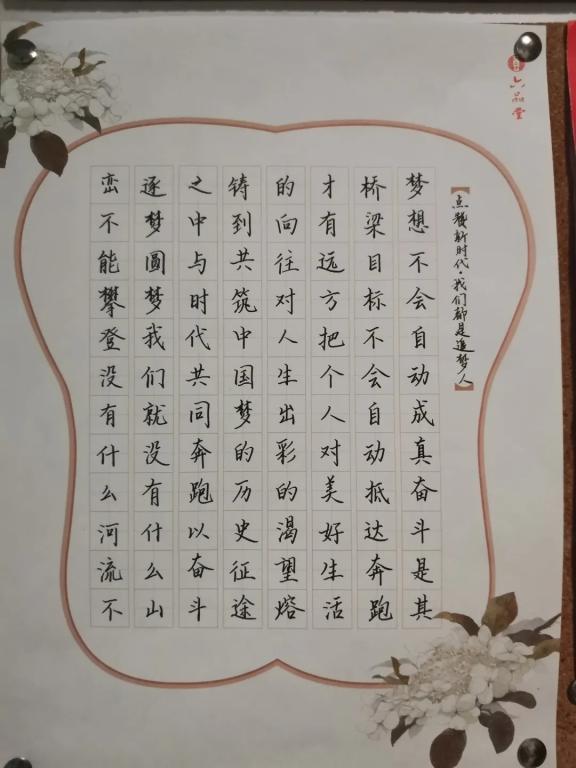 六品堂
【点赞新时代·我们都是追梦人】
梦想不会自动成真奋斗是其
桥梁目标不会自动抵达奔跑
才有远方把个人对美好生活
的向往对人生出彩的渴望熔
铸到共筑中国梦的历史征途
之中与时代共同奔跑以奋斗
逐梦圆梦我们就没有什么山
峦不能攀登没有什么河流不